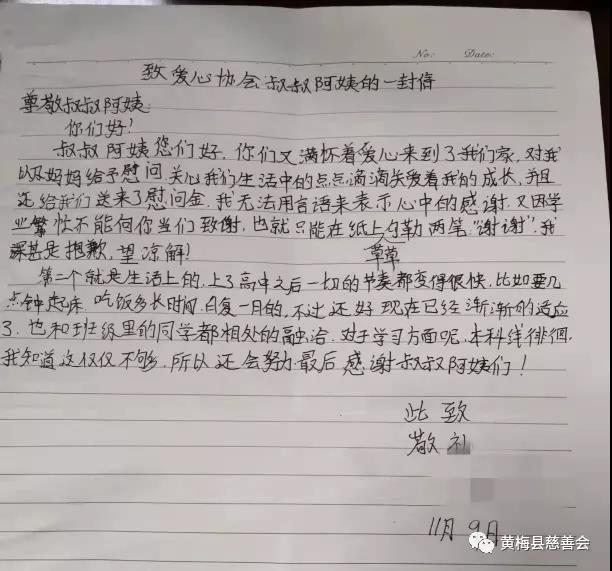 No: Date:
致爱心协会叔叔阿姨的一封信
尊敬叔叔阿姨:
你们好!
叔叔阿姨您们好,你们又满怀着爱心来到了我们家,对我
以及妈妈给予慰问关心我们生活中的点点滴滴关爱着我的成长,并且
还给我们送来了慰问金.我无法用言语来表示心中的感谢,又因学
业繁忙不能向你当们致谢,也就只能在纸上草草勾勒两笔"谢谢",我
深甚是抱歉,望凉解!
第二个就是生活上的,上了高中之后一切的节奏都变得很快,比如要几
点钟起床、吃饭多长时间,日复一日的,不过还好现在已经渐渐的适应
了,也和班级里的同学都相处的融洽.对于学习方面呢,本科线徘徊,
我知道这仅仅不够,所以还会努力最后感谢叔叔阿姨们!
此致
敬礼
11月9日
黄梅县慈善会